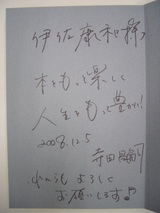 伊佐康和様
本をもっと楽しく
人生をもっと豊かに!
2008.12.5
寺田昌嗣
これからもよろしく
お願いします!!